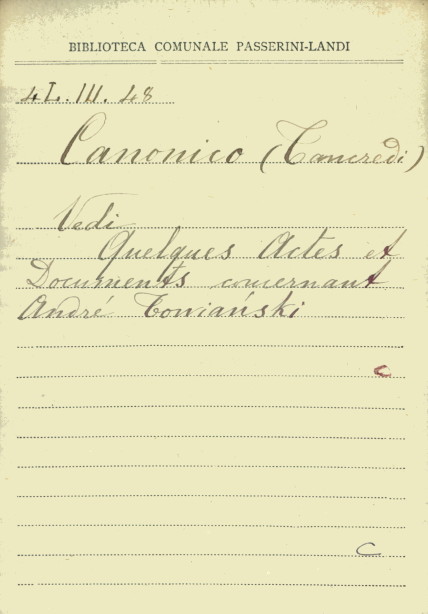 BIBLIOTECA COMUNALE PASSERINI-LANDI
4L.III.48
Canonico (Tancredi)
Vedi
Quelques Actes et
Documents concernant
André Towiański
C
C